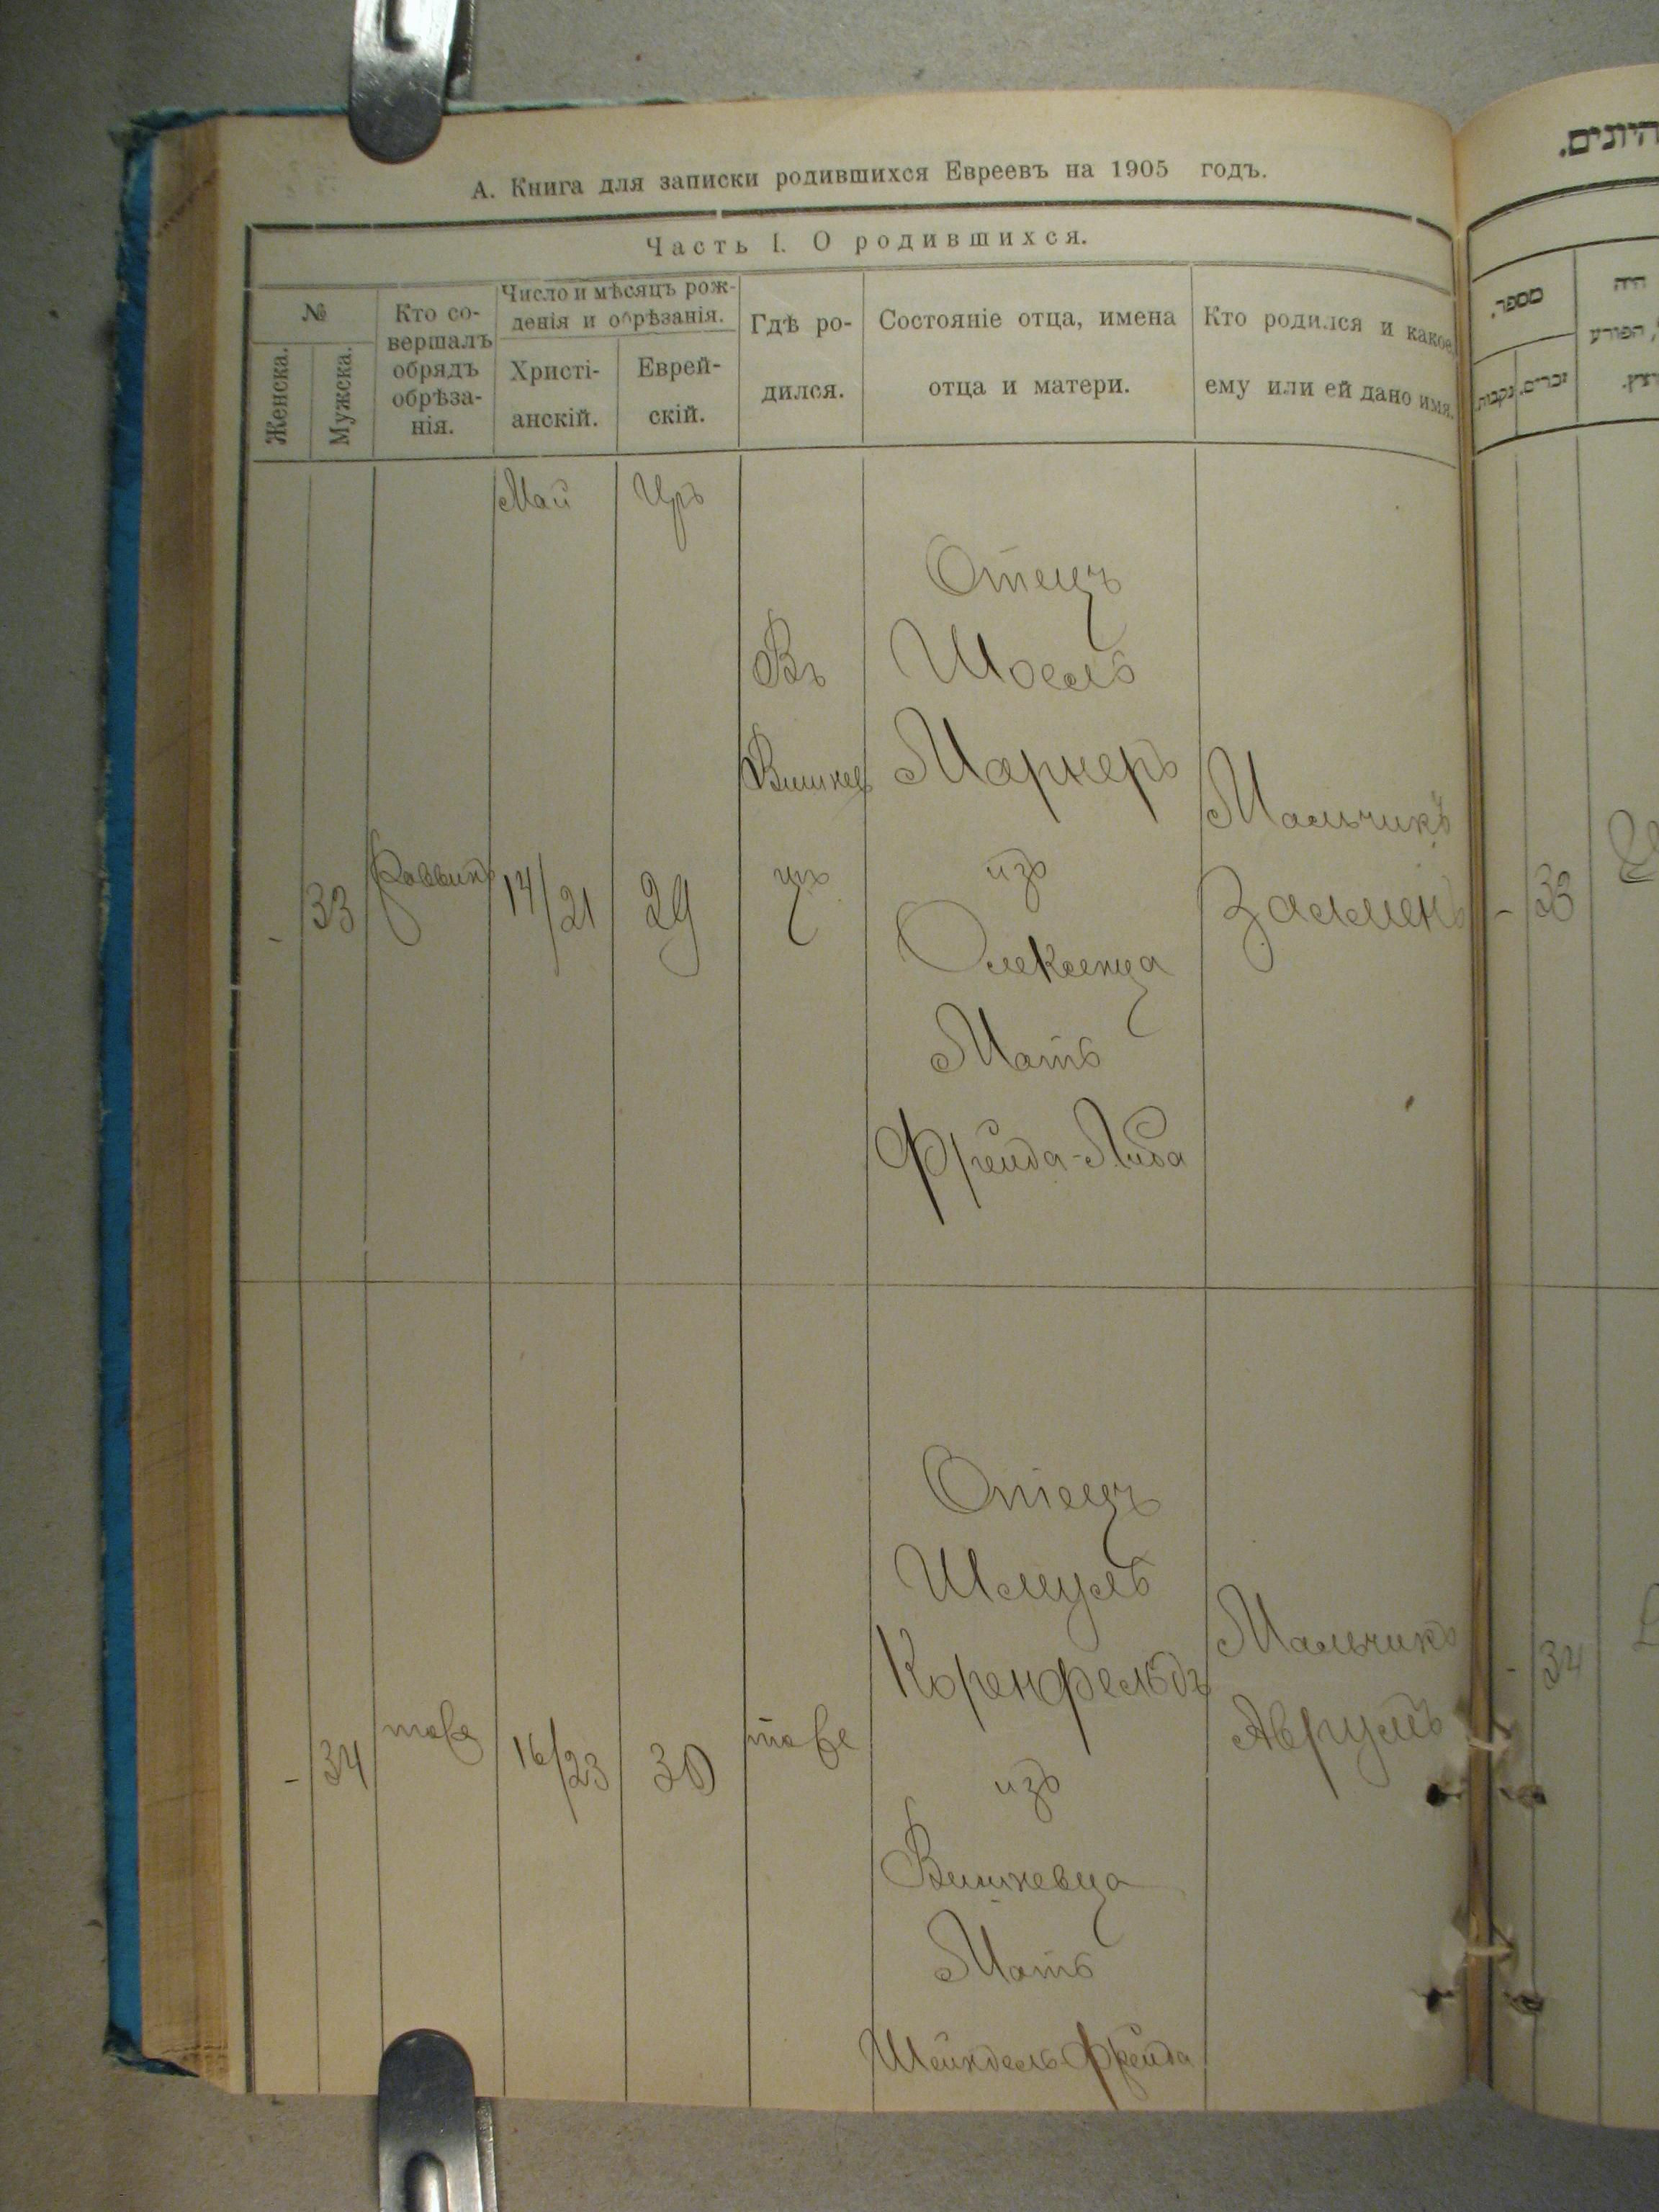 А. Книга для записки родившихся Евреевъ на 1905 годъ.
Часть I. О родившихся.
№
Женска.
Мужска.
Кто со-
вершалъ
обрядъ
обрѣза-
нія.
Число и мѣсяцъ рож-
денія и обрѣзанія.
Христі-
анскій.
Еврей-
скій.
Гдѣ ро-
дился.
Состояніе отца, имена
отца и матери.
Кто родился и какое
ему или ей дано имя.
Май
Иръ
-
33
Раввинъ
14/21
29
Въ
Вишнев
цѣ
Отецъ
Шоель
Маркеръ
изъ
Олексинца
Мать
Фрейда-Либа
Мальчикъ
Залменъ
-
34
тоже
16/23
30
тоже
Отецъ
Шмуль
Коренфельдъ
изъ
Вишневца
Мать
Шейндель-Фрейда
Мальчикъ
Аврумъ
מספר.
זכרים.
נקבות.
היה
- 33
- 34